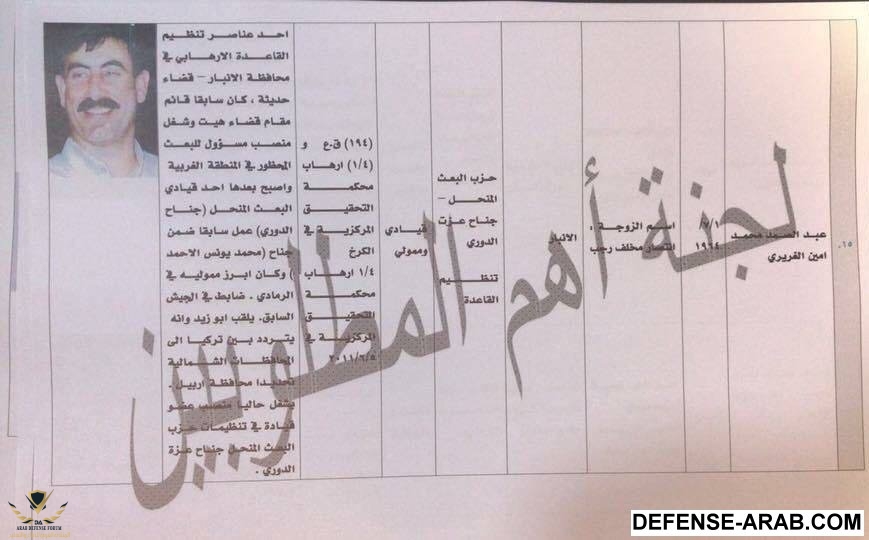 ١٥.
عبد الصمد محمد
امين الغريري
/٧/١
١٩٦٤
اسم الزوجة ،
انتصار مخلف رجب
الانبار
حزب البعث
المنحل –
جناح عزت
الدوري
تنظيم
القاعدة
قيادي
وممولي
(١٩٤) ق.ع و
(١/٤) ارهاب
محكمة
التحقيق
المركزية في
الكرخ
١/٤ ارهاب
محكمة
التحقيق
المركزية في
٢٠١١/٦/٥
احد عناصر تنظيم
القاعدة الارهابي في
محافظة الانبار – قضاء
حديثة ، كان سابقا قائم
مقام قضاء هيت وشغل
منصب مسؤول للبعث
المحظور في المنطقة الغربية
واصبح بعدها احد قيادي
البعث المنحل (جناح
الدوري) عمل سابقا ضمن
جناح (محمد يونس الاحمد
) وكان ابرز مموليه في
الرمادي . ضابط في الجيش
السابق. يلقب ابو زيد وانه
يتردد بين تركيا الى
المحافظات الشمالية
تحديدا محافظة اربيل .
يشغل حاليا منصب عضو
قيادة في تنظيمات حزب
البعث المنحل جناح عزة
الدوري .
لجنة أهم المطلوبين
DA
ARAB DEFENSE FORUM
DEFENSE-ARAB.COM